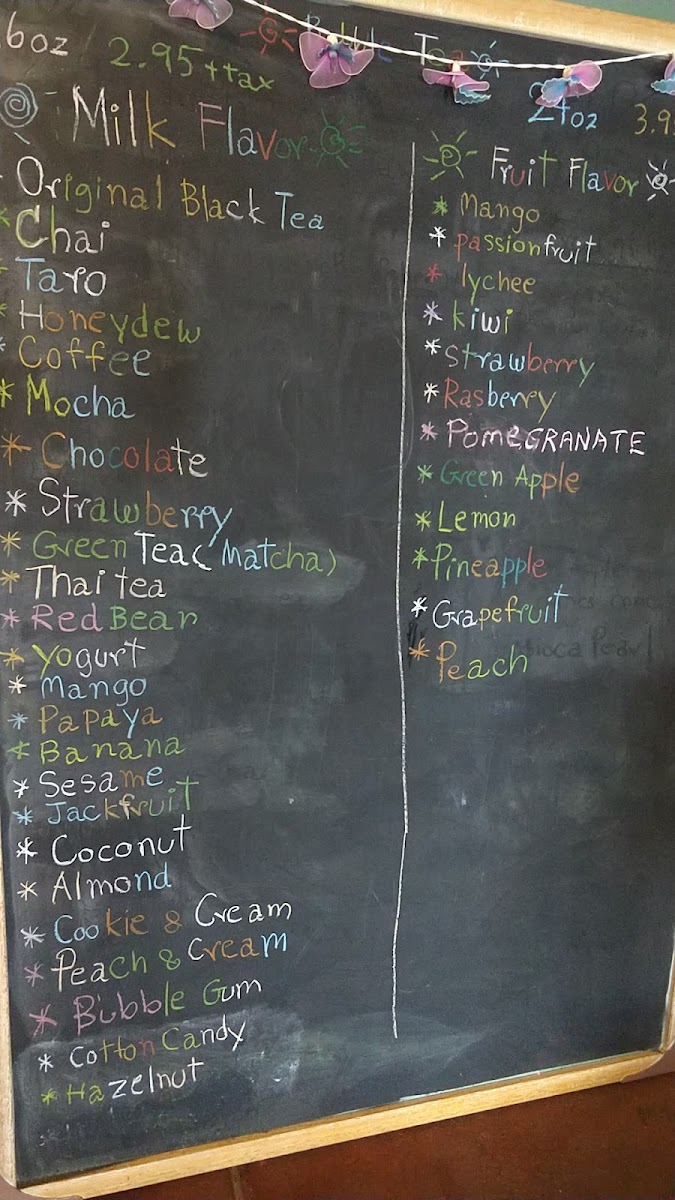 6oz 2.95+tax
Bubble Tea
24oz 3.9
Milk Flavor
Original Black Tea
Chai
Taro
Honeydew
Coffee
Mocha
* Chocolate
* Strawberry
* Green Tea (Matcha)
* Thai tea
* Red Bean
* Yogurt
* Mango
* Papaya
* Banana
* Sesame
* Jackfruit
* Coconut
* Almond
* Cookie & Cream
* Peach & Cream
* Bubble Gum
* Cotton Candy
* Hazelnut
Fruit Flavor
* Mango
* passionfruit
* lychee
* kiwi
* Strawberry
* Rasberry
* POMEGRANATE
* Green Apple
* Lemon
* Pineapple
* Grapefruit
* Peach